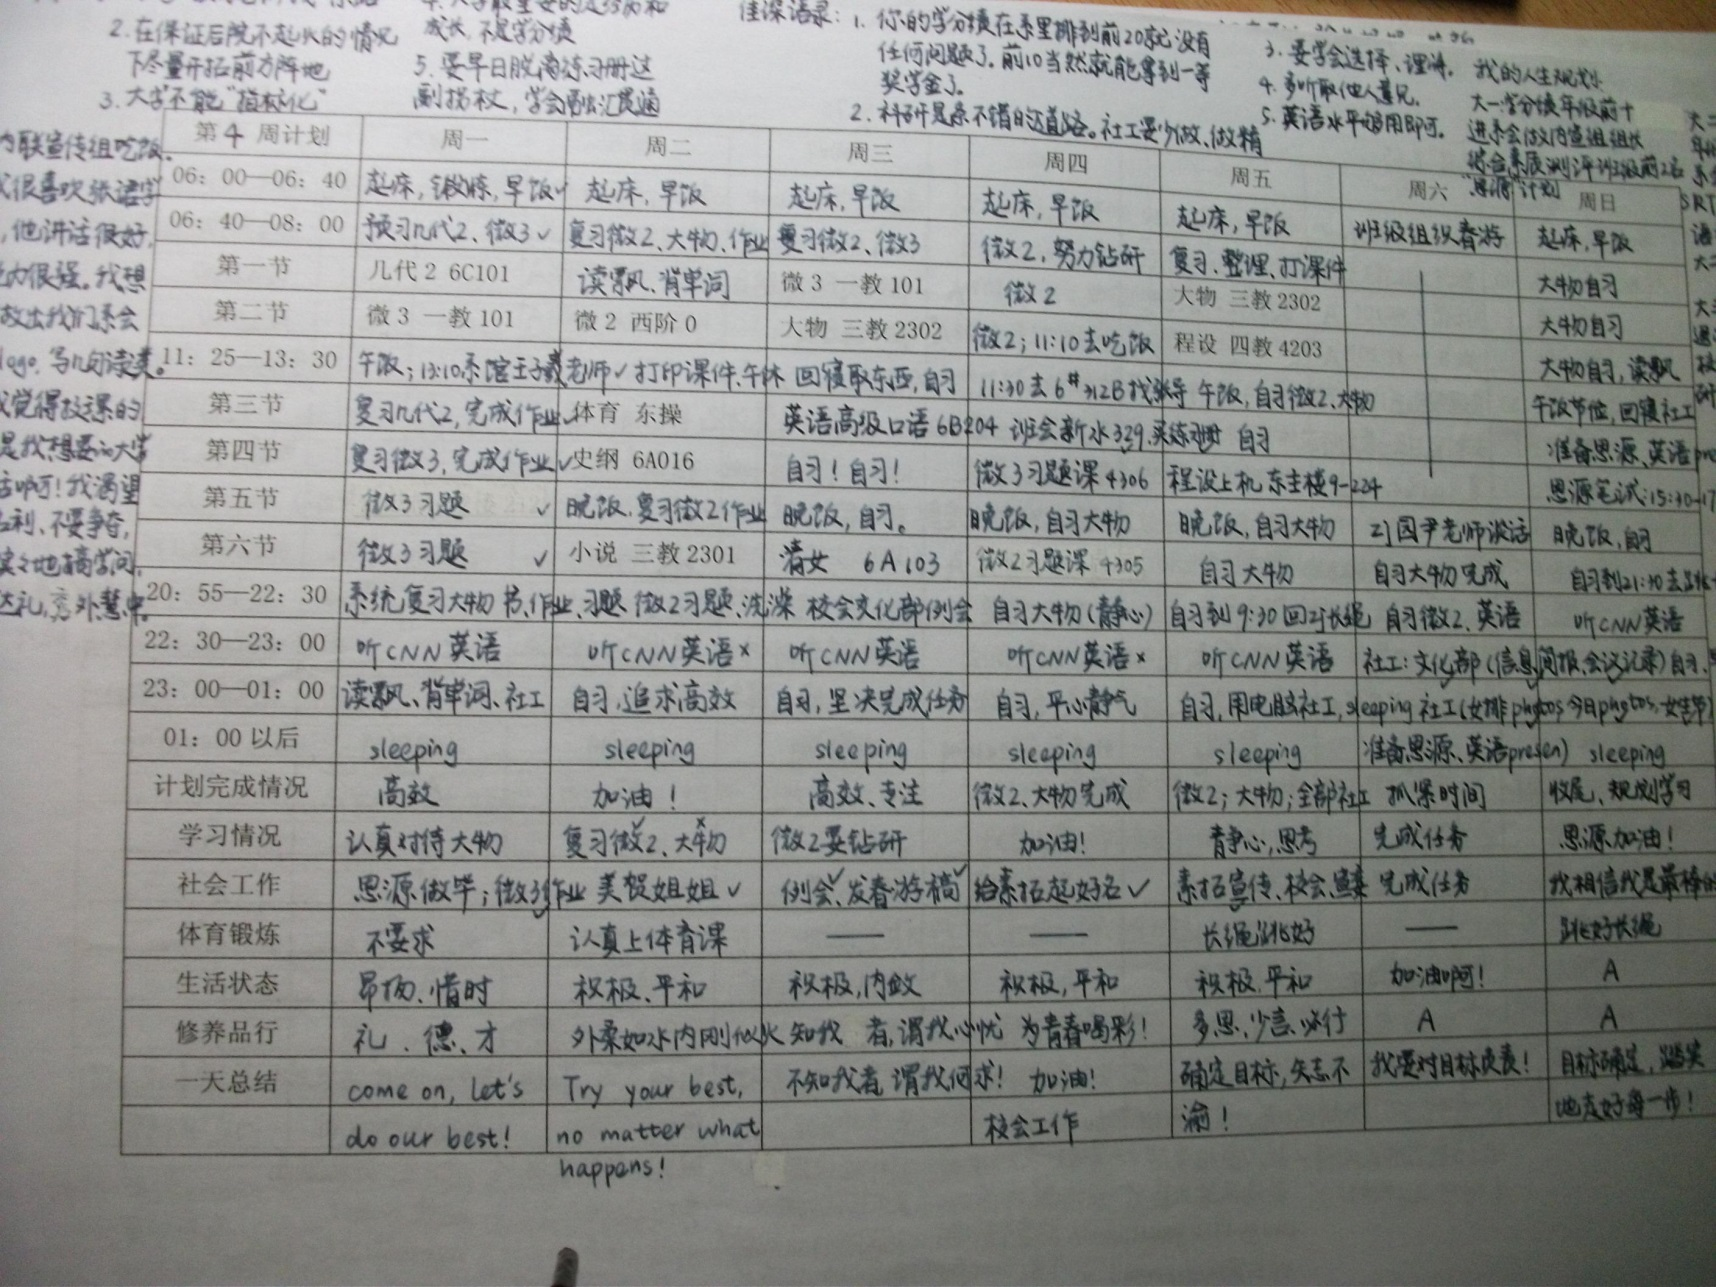 2.在保证后院不起火的情况
下尽量开拓前方阵地
3.大学不能"指标化"
成长,不是学分绩
5.要早日脱离练习册这
副拐杖,学会融汇贯通
佳深语录:1.你的学分绩在系里排到前20就没有
任何问题了。前10当然就能拿到一等
奖学金了。
2.科研是条不错的道路。社工要少做、做精
3.要学会选择、理清。
4.多听取他人意见。
5.英语水平够用即可。
我的人生规划
大一:学分绩年级前十
进系会做内宣组组长
综合素质测评班级前2名
"思源"计划
内联宣传组吃饭。
我很喜欢张语宇
,他讲话很好,
力很强。我想
做出我们系会
logo,写几句读类。
觉得校课的
是我想要的大学
啊!我渴望
名利、不要争夺,
实实地搞学问,
达礼,秀外慧中。
第4周计划 周一 周二 周三 周四 周五 周六 周日
06:00—06:40 起床,锻炼,早饭✓ 起床,早饭 起床,早饭 起床,早饭 起床,早饭 班级组织春游 起床,早饭
06:40—08:00 预习几代2、微3✓ 复习微2、大物、作业 复习微2、微3 微2,努力钻研 复习、整理、打课件 大物自习
第一节 几代2 6C101 读飘、背单词 微3 一教101 微2 大物 三教2302 大物自习
第二节 微3 一教101 微2 西阶0 大物 三教2302 微2;11:10去吃饭 程设 四教4203 大物自习,读飘
11:25—13:30 午饭;13:10系馆王子羲老师✓ 打印课件、午休 回寝取东西,自习 11:30去6#312B找张导 午饭,自习微2、大物 午饭节俭,回寝社工
第三节 复习几代2,完成作业 体育 东操 英语高级口语6B204 班会新水329,买练习册 自习 准备思源、英语pre
第四节 复习微3,完成作业✓ 史纲 6A016 自习!自习! 微3习题课4306 程设上机 东主楼9-224 思源笔试:15:30-17
第五节 微3习题 ✓ 晚饭,复习微2作业 晚饭,自习。 晚饭,自习大物 晚饭,自习大物 2)园尹老师谈话 晚饭,自习
第六节 微3习题 ✓ 小说 三教2301 清女 6A103 微2习题课 4305 自习大物 自习大物完成 自习到21:30去跳
20:55—22:30 系统复习大物书、作业、习题 微2习题、洗澡 校会文化部例会 自习大物(静心) 自习到9:30回2#长绳 自习微2、英语 听CNN英语
22:30—23:00 听CNN英语 听CNN英语× 听CNN英语 听CNN英语× 听CNN英语 社工:文化部(信息简报,会议记录) 自习、
23:00—01:00 读飘、背单词、社工 自习,追求高效 自习,坚决完成任务 自习,平心静气 自习,用电脑社工,sleeping 社工(女排photos今日photos,女生节)
01:00以后 sleeping sleeping sleeping sleeping sleeping 准备思源、英语presen) sleeping
计划完成情况 高效 加油! 高效、专注 微2、大物完成 微2;大物;全部社工 抓紧时间 收尾、规划学习
学习情况 认真对待大物 复习微2✓、大物× 微2要钻研 加油! 静心,思考 完成任务 思源加油!
社会工作 思源做毕;微3作业 美贺姐姐✓ 例会✓、发春游稿✓ 给素拓起好名✓ 素拓宣传、校会 完成任务 我相信我是最棒的
体育锻炼 不要求 认真上体育课 —— —— 长绳跳好 —— 跳好长绳
生活状态 昂扬、惜时 积极、平和 积极,内敛 积极,平和 积极,平和 加油啊! A
修养品行 礼、德、才 外柔如水内刚似火 知我者,谓我心忧 为青春喝彩! 多思、少言、必行 A A
一天总结 come on, let's Try your best, 不知我者,谓我何求! 加油! 确定目标,矢志不 我要对目标负责! 目标确定,踏实
do our best! no matter what 校会工作 渝! 地走好每一步!
happens!